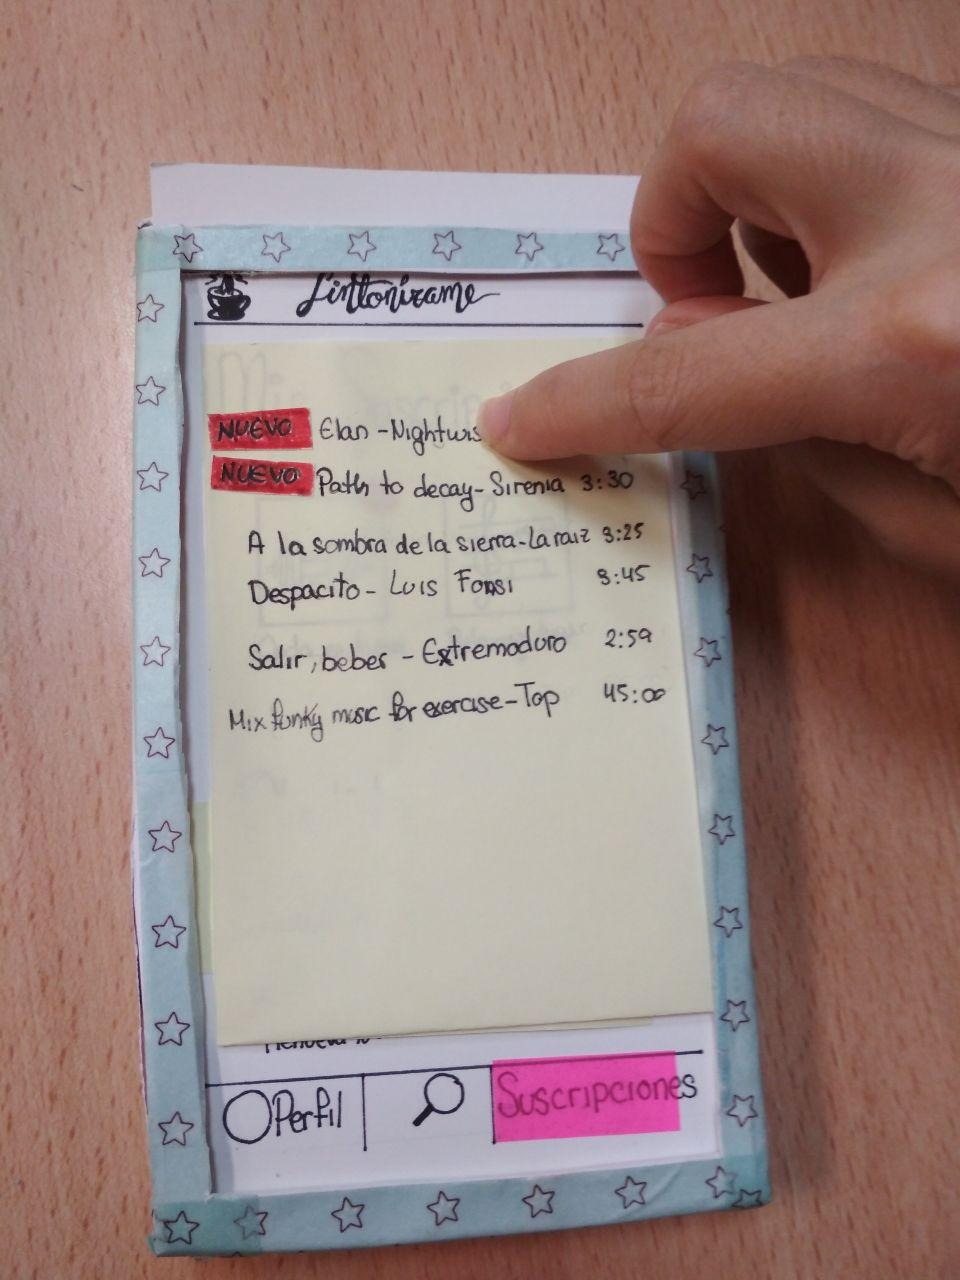 Sinttonizame
NUEVO Elan - Nightwis
NUEVO Path to decay - Sirenia 3:30
A la sombra de la sierra - La raiz 3:25
Despacito - Luis Fonsi 3:45
Salir, beber - Extremoduro 2:59
Mix funky music for exercise - Top 45:00
Perfil Suscripciones